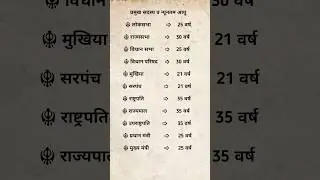 प्रमुख सदस्य व न्यूनतम आयु
लोकसभा ⇨ 25 वर्ष
राज्यसभा ⇨ 30 वर्ष
विधान सभा ⇨ 25 वर्ष
विधान परिषद ⇨ 30 वर्ष
मुखिया ⇨ 21 वर्ष
सरपंच ⇨ 21 वर्ष
राष्ट्रपति ⇨ 35 वर्ष
राज्यपाल ⇨ 35 वर्ष
उपराष्ट्रपति ⇨ 35 वर्ष
प्रधान मंत्री ⇨ 25 वर्ष
मुख्य मंत्री ⇨ 25 वर्ष